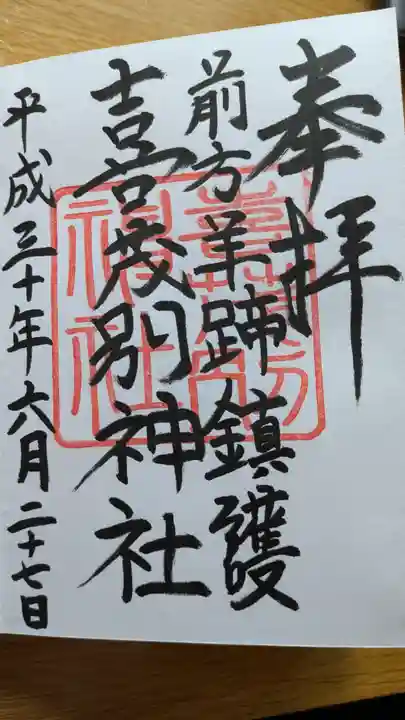 奉拝
前方羊蹄鎮護
喜茂別神社
平成三十年六月二十七日